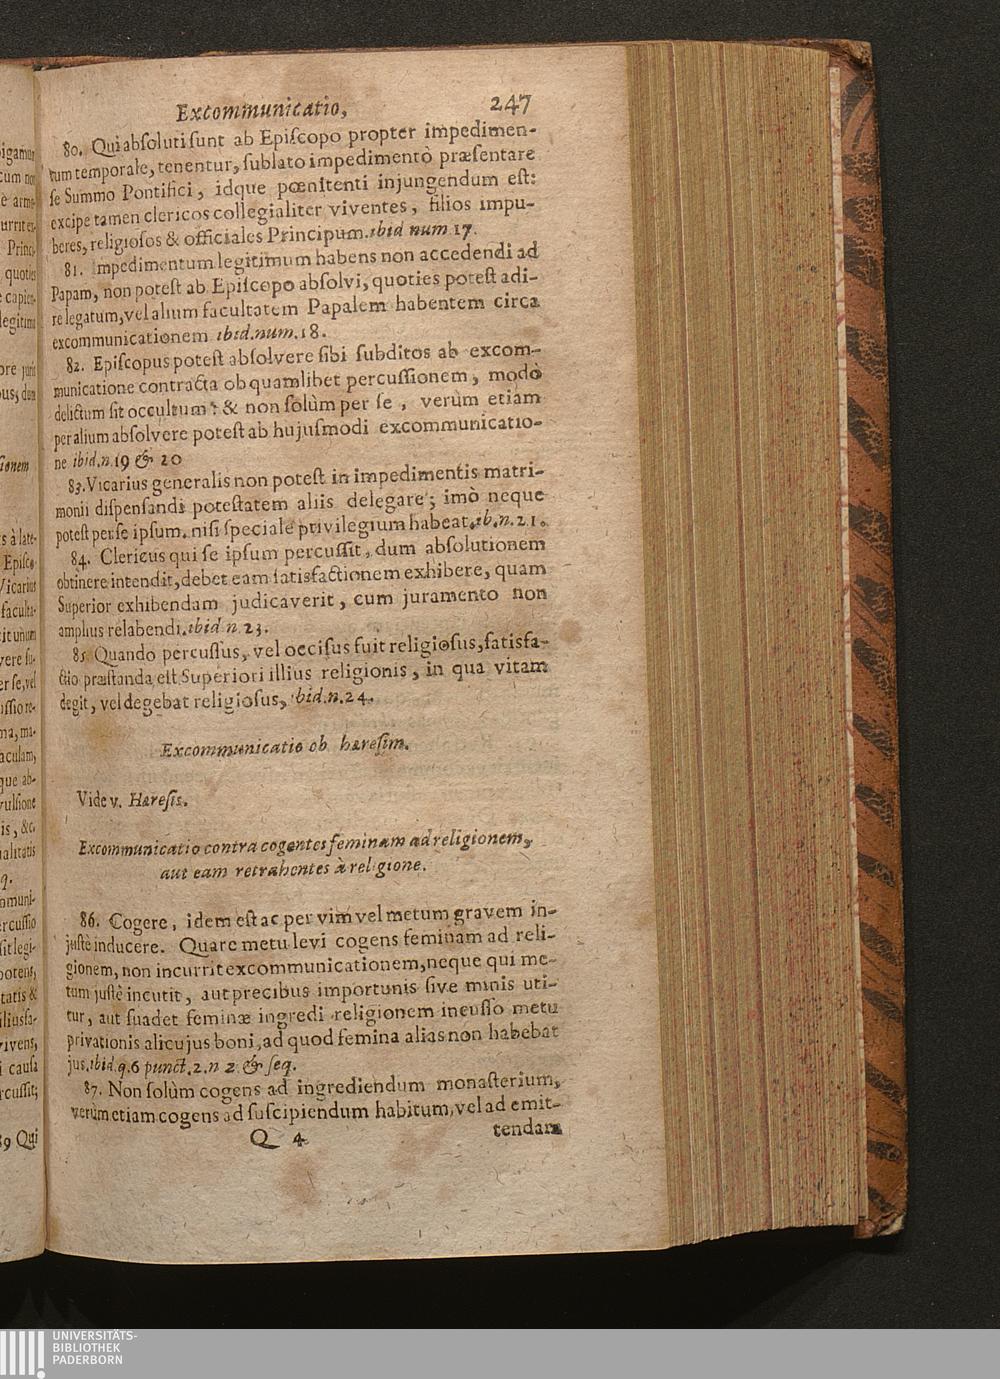 igamur
cum non
è arm-
urrit ex-
Princi-
quoties
capien-
legitimū
ore juris
ous, dum
sionem
s à late-
Episco-
Vicarius
faculta-
it unum
vere su-
er se, vel
ussio re-
na, ma-
aculam,
que ab-
vulsione
is, &c.
ialitatis
q.
mmuni-
rcussio
sit legi-
potens,
tatis &
ilius fa-
vivens,
i causa
rcussit;
89 Qui
Excommunicatio, 247
80. Qui absoluti sunt ab Episcopo propter impedimen-
tum temporale, tenentur, sublato impedimentò præsentare
se Summo Pontifici, idque pœnitenti injungendum est:
excipe tamen clericos collegialiter viventes, filios impu-
beres, religiosos & officiales Principum. ibid num 17.
81. Impedimentum legitimum habens non accedendi ad
Papam, non potest ab Episcopo absolvi, quoties potest adi-
re legatum, vel alium facultatem Papalem habentem circa
excommunicationem ibid. num. 18.
82. Episcopus potest absolvere sibi subditos ab excom-
municatione contracta ob quamlibet percussionem, modò
delictum sit occultum: & non solùm per se, verùm etiam
per alium absolvere potest ab hujusmodi excommunicatio-
ne ibid. n. 19 & 20
83. Vicarius generalis non potest in impedimentis matri-
monii dispensandi potestatem aliis delegare; imò neque
potest per se ipsum, nisi speciale privilegium habeat. ib. n. 21.
84. Clericus qui se ipsum percussit, dum absolutionem
obtinere intendit, debet eam satisfactionem exhibere, quam
Superior exhibendam judicaverit, cum juramento non
amplius relabendi. ibid n. 23.
85 Quando percussus, vel occisus fuit religiosus, satisfa-
ctio præstanda est Superiori illius religionis, in qua vitam
degit, vel degebat religiosus, ibid. n. 24.
Excommunicatio ob hæresim.
Vide v. Hæresis.
Excommunicatio contra cogentes feminam ad religionem,
aut eam retrahentes à religione.
86. Cogere, idem est ac per vim vel metum gravem in-
justè inducere. Quare metu levi cogens feminam ad reli-
gionem, non incurrit excommunicationem, neque qui me-
tum justè incutit, aut precibus importunis sive minis uti-
tur, aut suadet feminæ ingredi religionem incusso metu
privationis alicujus boni, ad quod femina alias non habebat
jus. ibid. q. 6 punct. 2. n 2 & seq.
87. Non solùm cogens ad ingrediendum monasterium,
verùm etiam cogens ad suscipiendum habitum, vel ad emit-
Q 4 tendam
UNIVERSITÄTS-
BIBLIOTHEK
PADERBORN